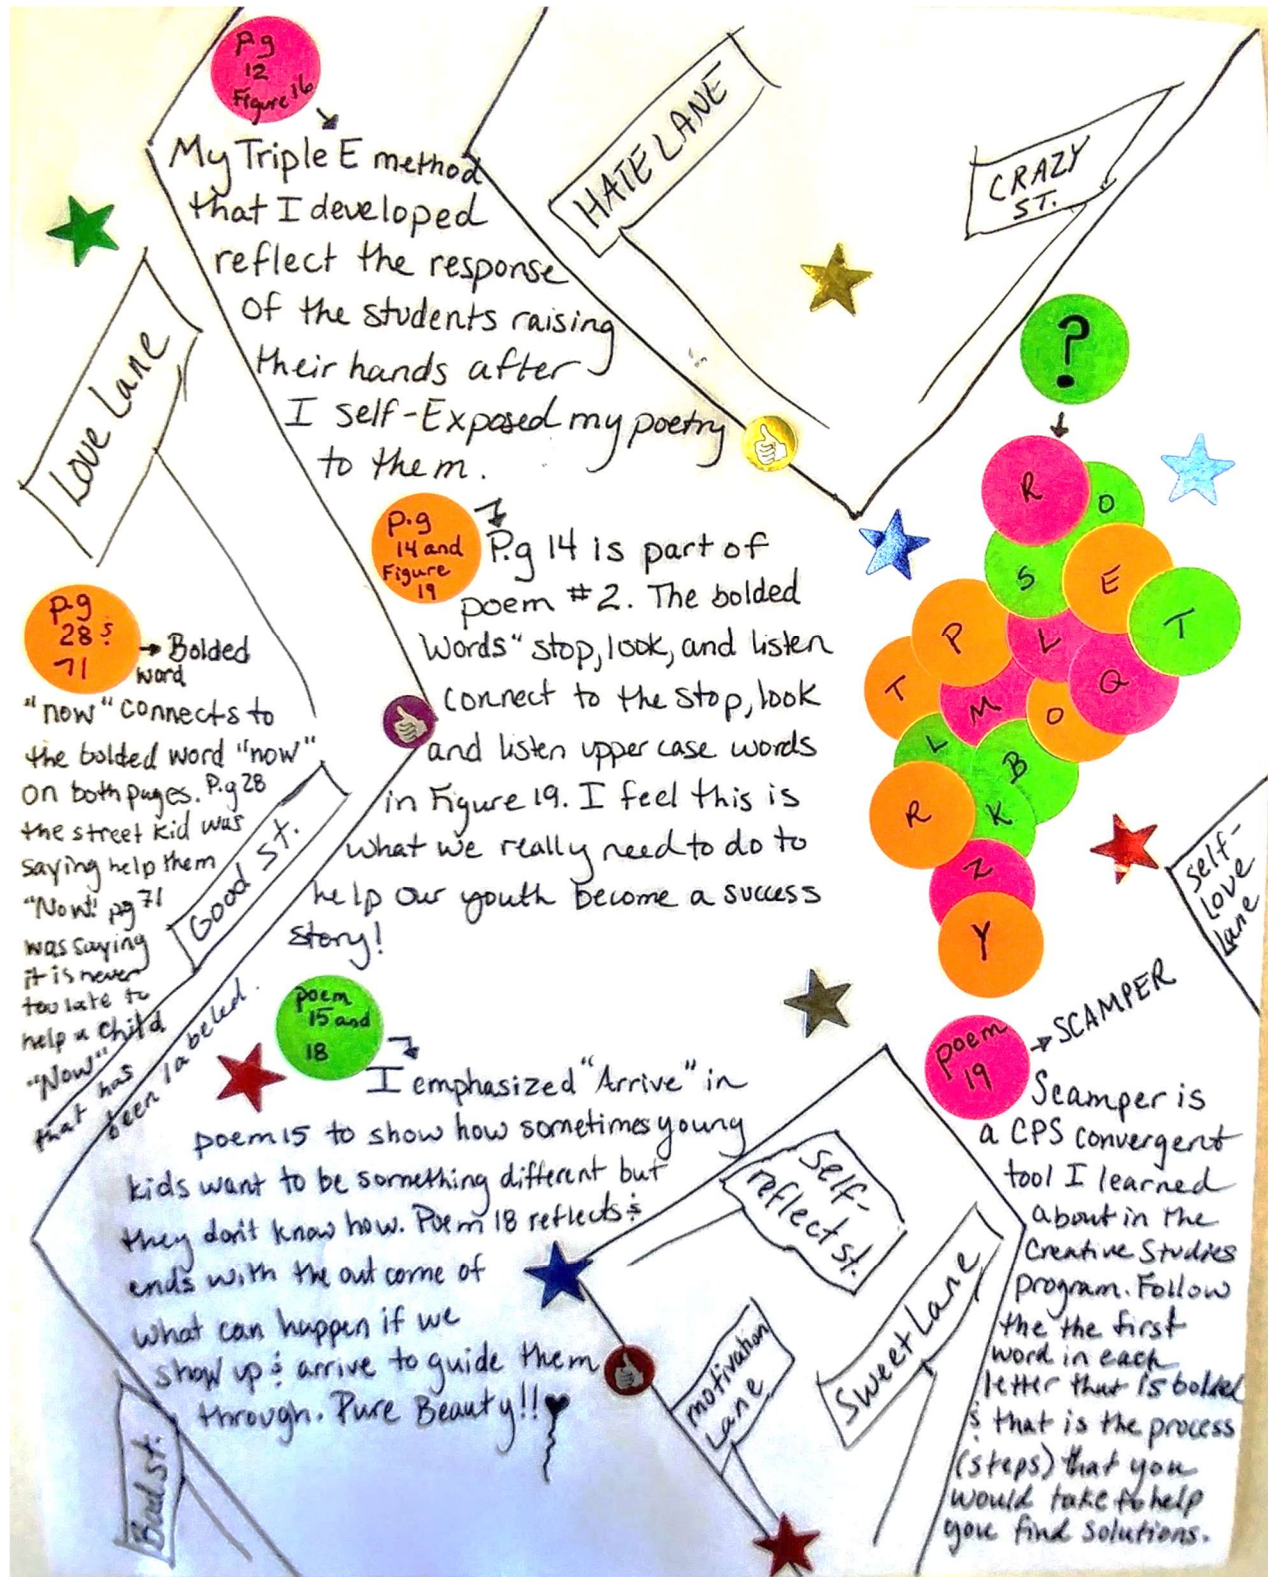 P.g
12
Figure 16
My Triple E method
that I developed
reflect the response
of the students raising
their hands after
I self-Exposed my poetry
to them.
HATE LANE
CRAZY
ST.
Love Lane
?
R
O
S
E
T
P
L
Q
T
M
O
L
B
R
K
Z
Y
P.g
14 and
Figure
19
P.g 14 is part of
poem #2. The bolded
words "stop, look, and listen
connect to the stop, look
and listen upper case words
in Figure 19. I feel this is
what we really need to do to
help our youth become a success
story!
P.g
28 &
71
Bolded
word
"now" connects to
the bolded word "now"
on both pages. P.g 28
the street kid was
saying help them
"Now". pg 71
was saying
it is never
too late to
help a child
"Now"
that has
been labeled.
Good st.
self-
Love
Lane
poem
15 and
18
I emphasized "Arrive" in
poem 15 to show how sometimes young
kids want to be something different but
they don't know how. Poem 18 reflects &
ends with the out come of
what can happen if we
show up & arrive to guide them
through. Pure Beauty!!
poem
19
SCAMPER
Scamper is
a CPS convergent
tool I learned
about in the
Creative Studies
program. Follow
the the first
word in each
letter that is bolded
& that is the process
(steps) that you
would take to help
you find solutions.
self-
reflect st.
Sweet Lane
motivation
Lane
Bad st.